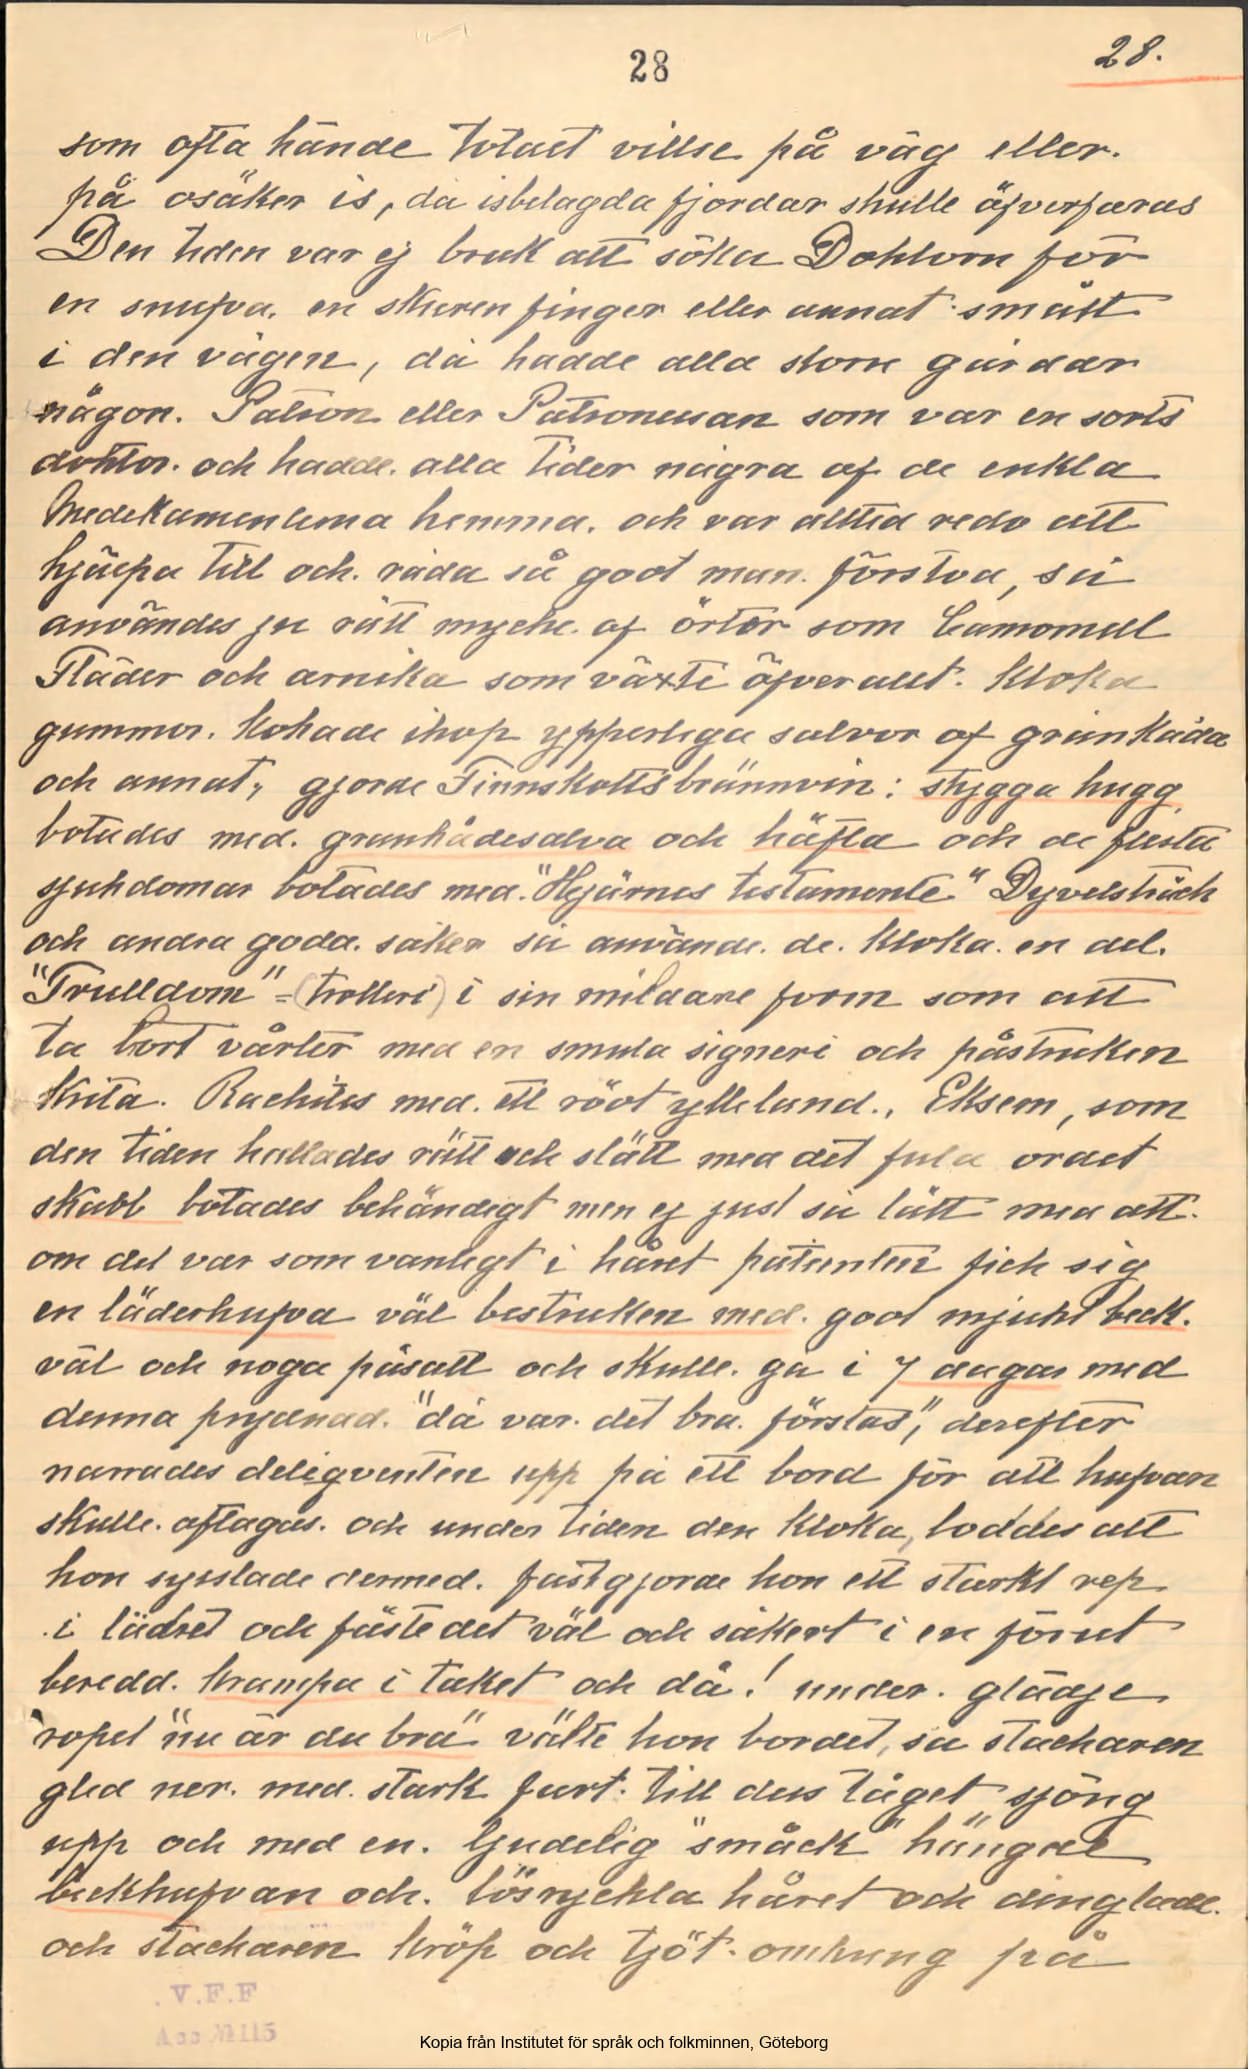 28
28.
som ofta hände totalt villse på väg eller.
på osäker is, då isbelagda fjordar skulle öfverfaras
Den tiden var ej bruk att söka Doktorn för
en snufva. en skuren finger eller annat smått
i den vägen, då hadde alla storre gårdar
någon. Patron eller Patronessan som var en sorts
doktor. och hadde. alla tider några af de enkla
Medekamenterna hemma. och var alltid redo att
hjälpa till och. råda så godt man. förstod, så
användes ju rätt mycke. af örter som Camomell
Fläder och arnika som växte öfverallt. Kloka
gummor. kokade ihop ypperliga salvor af grankåda
och annat, gjorde Finnskottsbrännvin: stygga hugg
botades med. grankådesalva och häfta och de flesta
sjukdomar botades med. "Hjärnes testamente" Dyvelsträck
och andra goda. saker så använde. de. kloka. en del.
"Trulldom" = (trolleri) i sin mildare form som att
ta bort vårter med en smula signeri och påstruken
krita. Rachites med. ett rödt ylleband., Eksem, som
den tiden kallades rätt och slätt med det fula ordet
skabb botades behändigt men ej just så lätt med att.
om det var som vanligt i håret patienten fick sig
en läderhufva väl bestruken med. god mjukt beck.
väl och noga påsatt och skulle. gå i 7 dagar med
denna prydnad. "då var. det bra. förstås", derefter
narrades deligventen upp på ett bord för att hufvan
skulle. aftagas. och under tiden den kloka, loddes att
hon sysslade dermed. fastgjorde hon ett starkt rep
i lädret och fäste det väl och säkert i en förut
beredd. krampa i taket och då! under. glädje
ropet "nu är du bra" välte hon bordet, så stackaren
gled ner. med. stark fart: till dess tåget sjöng
upp och med en. ljudelig "smäck" hängde
beckhufvan och. lösryckta håret och dinglade.
och stackaren kröp och tjöt. omkring på
V.F.F
Acc № 115
Kopia från Institutet för språk och folkminnen, Göteborg